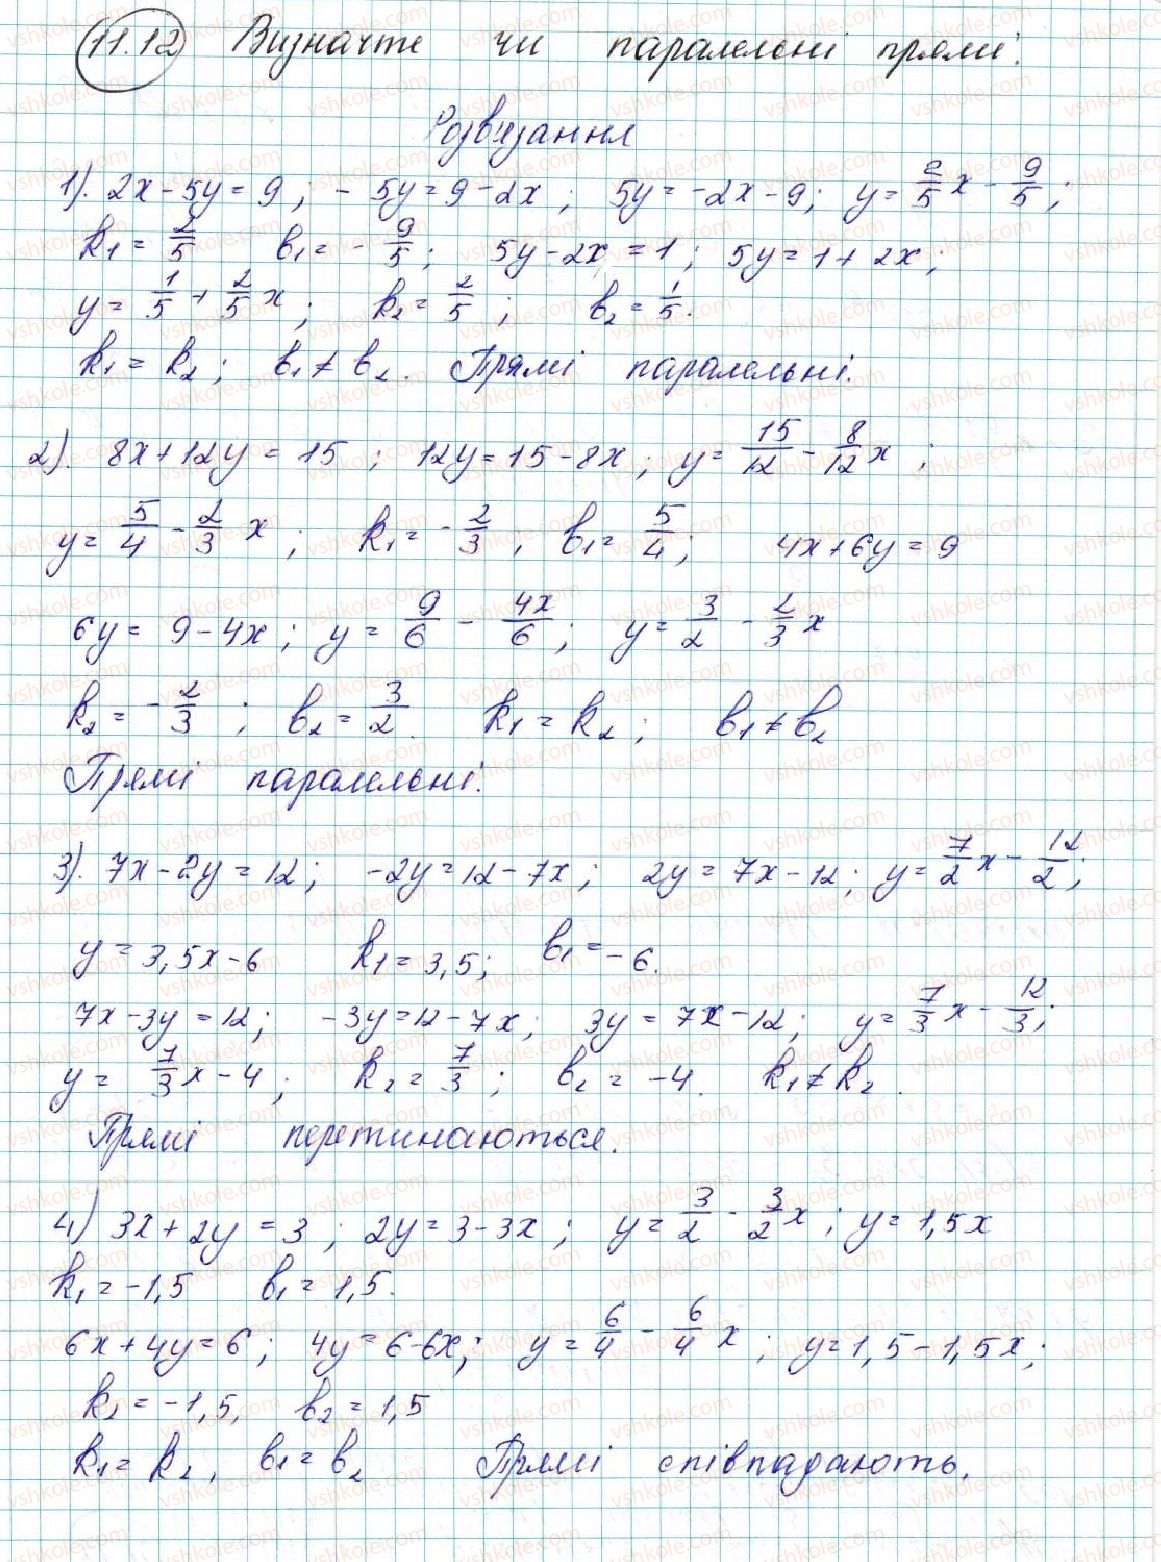 11.12 Визначте чи паралельні прямі:
Розв'язання
1). 2x - 5y = 9; - 5y = 9 - 2x; 5y = -2x - 9; y = 2/5 x - 9/5;
k₁ = 2/5 b₁ = - 9/5; 5y - 2x = 1; 5y = 1 + 2x;
y = 1/5 + 2/5 x; k₂ = 2/5; b₂ = 1/5.
k₁ = k₂; b₁ ≠ b₂. Прямі паралельні.
2). 8x + 12y = 15; 12y = 15 - 8x; y = 15/12 - 8/12 x;
y = 5/4 - 2/3 x; k₁ = - 2/3, b₁ = 5/4; 4x + 6y = 9
6y = 9 - 4x; y = 9/6 - 4x/6; y = 3/2 - 2/3 x
k₂ = - 2/3; b₂ = 3/2. k₁ = k₂; b₁ ≠ b₂
Прямі паралельні.
3). 7x - 2y = 12; -2y = 12 - 7x; 2y = 7x - 12; y = 7/2 x - 12/2;
y = 3,5x - 6 k₁ = 3,5; b₁ = -6.
7x - 3y = 12; -3y = 12 - 7x; 3y = 7x - 12; y = 7/3 x - 12/3;
y = 7/3 x - 4; k₂ = 7/3; b₂ = -4. k₁ ≠ k₂.
Прямі перетинаються.
4) 3x + 2y = 3; 2y = 3 - 3x; y = 3/2 - 3/2 x; y = 1,5x
k₁ = -1,5 b₁ = 1,5.
6x + 4y = 6; 4y = 6 - 6x; y = 6/4 - 6/4 x; y = 1,5 - 1,5x;
k₂ = -1,5, b₂ = 1,5
k₁ = k₂, b₁ = b₂ Прямі співпадають.
vshkole.com